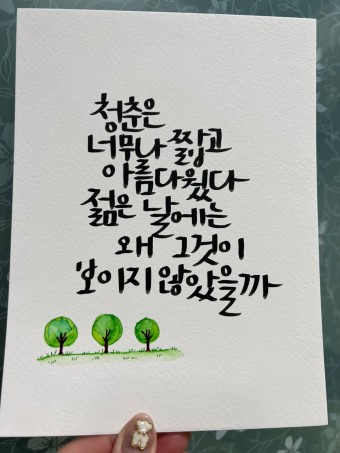 청춘은
너무나 짧고
아름다웠다
젊은 날에는
왜 그것이
보이지 않았을까